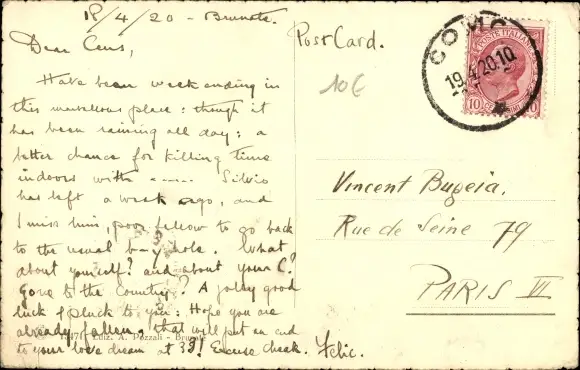 18/4/20 - Brunate.
Dear Cens,
Have been week ending in
this marvellous place: though it
has been raining all day; a
better chance for killing time
indoors with ----- Silvio
has left a week ago, and
I miss him, poor fellow to go back
to the usual hole. What
about yourself? and about your C.?
gone to the country? A jolly good
luck & pluck to you: Hope you are
already fallen, that will put an end
to your love dream at 33! Excuse cheek. Felic.
Ediz. A. Pozzali - Brunate
PostCard.
10€
COMO
19.4.20.10
POSTE ITALIANE
10
10
Vincent Bugeia.
Rue de Seine 79
PARIS VI